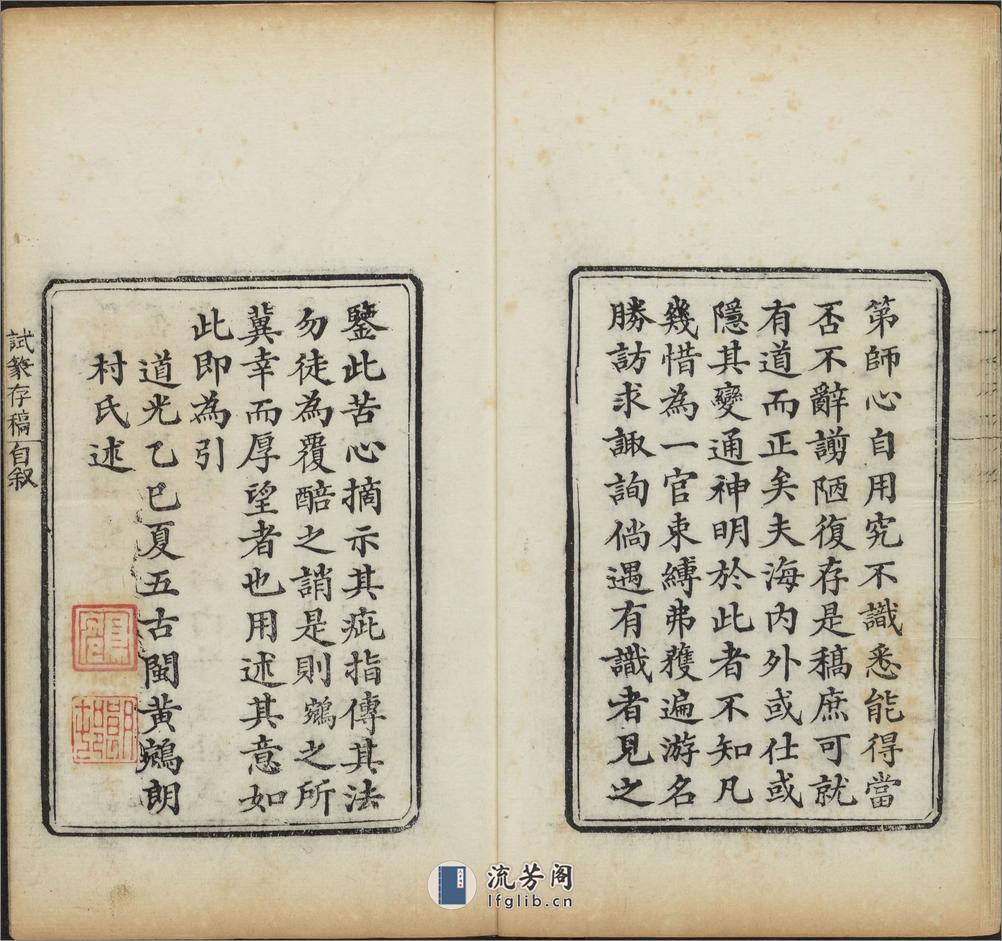 第師心自用究不識悉能得當
否不辭謭陋復存是稿庶可就
有道而正矣夫海内外或仕或
隱其變通神明於此者不知凡
幾惜為一官束縛弗獲遍游名
勝訪求諏詢倘遇有識者見之
鑒此苦心摘示其疵指傳其法
勿徒為覆醅之誚是則鵷之所
冀幸而厚望者也用述其意如
此即為引
道光乙巳夏五古閩黃鵷朗
村氏述
試篆存稿
自叙
流芳阁
lfglib.cn